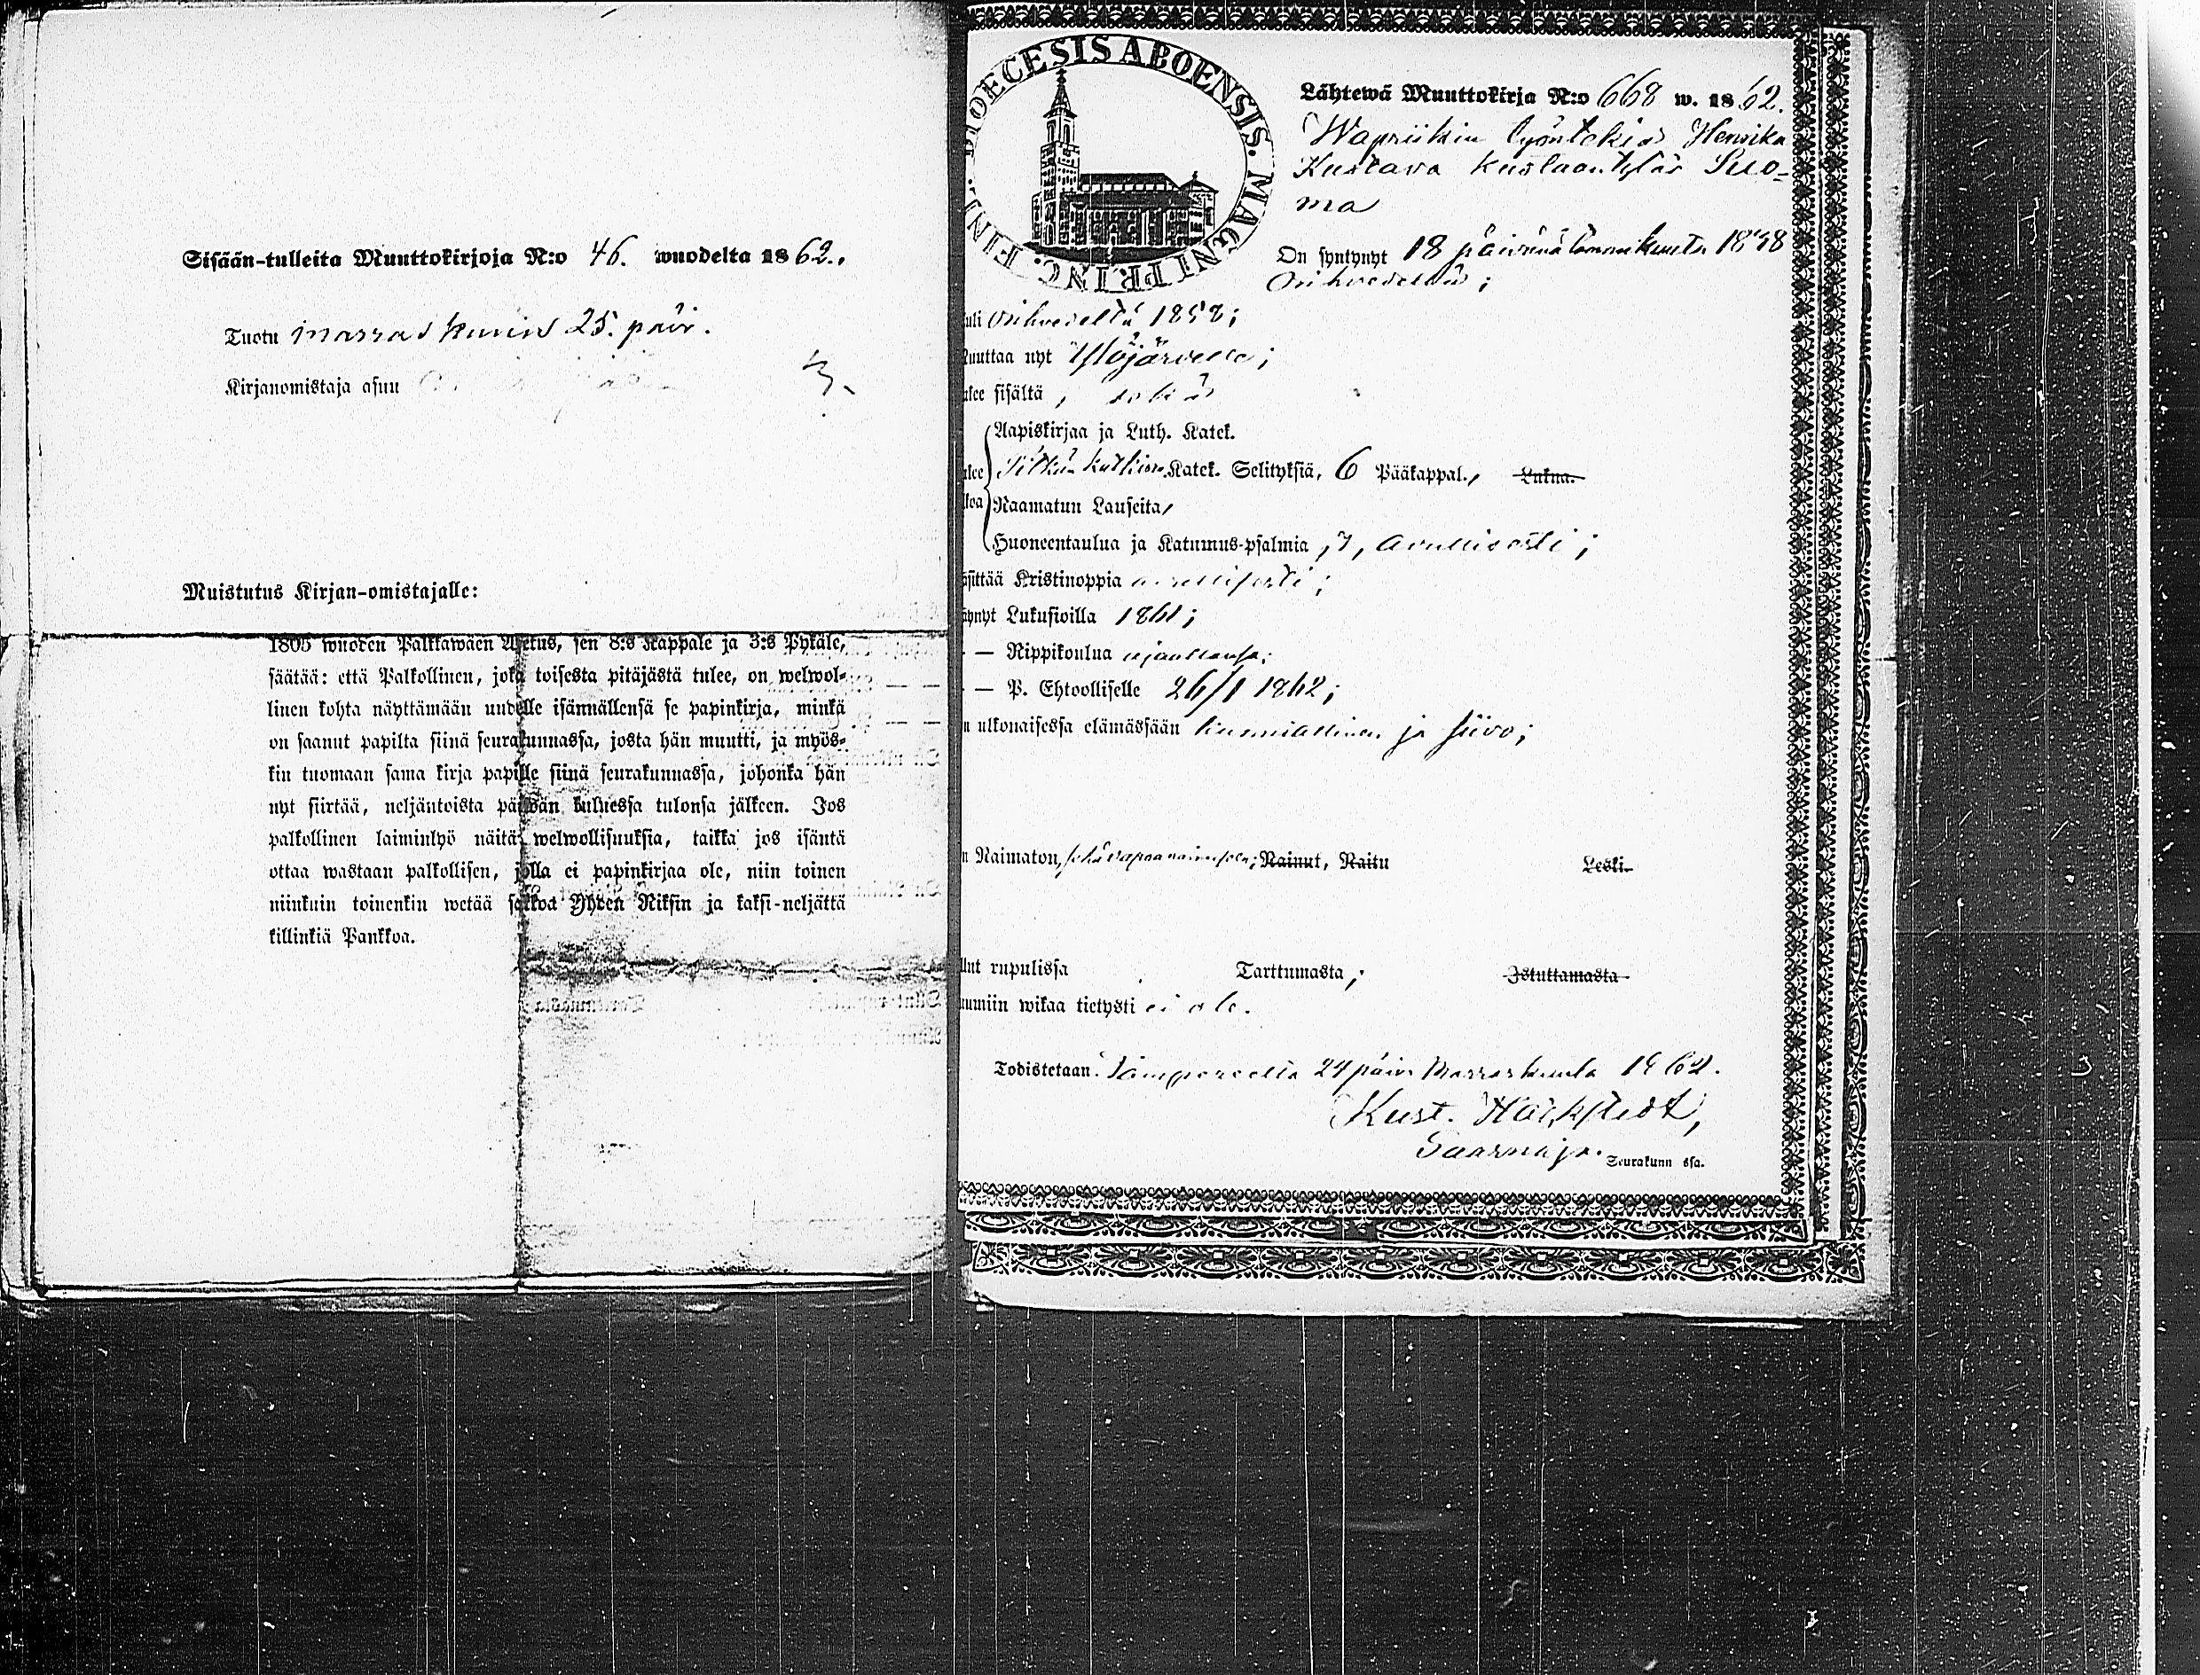 Sisään-tulleita Muuttokirjoja N:o 46. wuodelta 1862.
Tuotu marraskuun 25. päiv.
Kirjanomistaja asuu
Muistutus Kirjan-omistajalle:
1805 wuoden Palkkawäen Asetus, sen 8:s Kappale ja 3:s Pykäle,
säätää: että Palkollinen, joka toisesta pitäjästä tulee, on welwol-
linen kohta näyttämään uudelle isännällensä se papinkirja, minkä
on saanut papilta siinä seurakunnassa, josta hän muutti, ja myös-
kin tuomaan sama kirja papille siinä seurakunnassa, johonka hän
nyt siirtää, neljäntoista päiwän kuluessa tulonsa jälkeen. Jos
palkollinen laiminlyö näitä welwollisuuksia, taikka jos isäntä
ottaa wastaan palkollisen, jolla ei papinkirjaa ole, niin toinen
niinkuin toinenkin wetää sakkoa Yhden Riksin ja kaksi-neljättä
killinkiä Pankkoa.
DIOECESIS ABOENSIS. MAGNI PRINC. FINL.
Lähtewä Muuttokirja N:o 668 w. 1862.
Wapriikin työntekiä Henrika
Kustava Kustaantytär Suo-
ma
On syntynyt 18 päivänä tammikuuta 1848
Orihvedellä;
uli Orihvedeltä 1858;
Muuttaa nyt Ylöjärvelle;
ukee sisältä,
Aapiskirjaa ja Luth. Katek.
ukee Pitkän kutkinn. Katek. Selityksiä, 6 Pääkappal., Lukua.
lkoa Raamatun Lauseita,
Huoneentaulua ja Katumus-psalmia, 7, avullisesti;
äsittää Kristinoppia avullisesti;
äynyt Lukusioilla 1861;
— Rippikoulua ajallansa;
— P. Ehtoolliselle 26/1 1862;
n ulkonaisessa elämässään kunniallinen ja siivo;
n Naimaton, sekä vapaa naimiseen; Nainut, Naitu Leski.
llut rupulissa Tarttumasta, Istuttamasta
umiin wikaa tietysti ei ole.
Todistetaan Tampereella 24 päiv. Marraskuuta 1862.
Kust. Häckstedt,
Saarnaja. Seurakunn ssa.